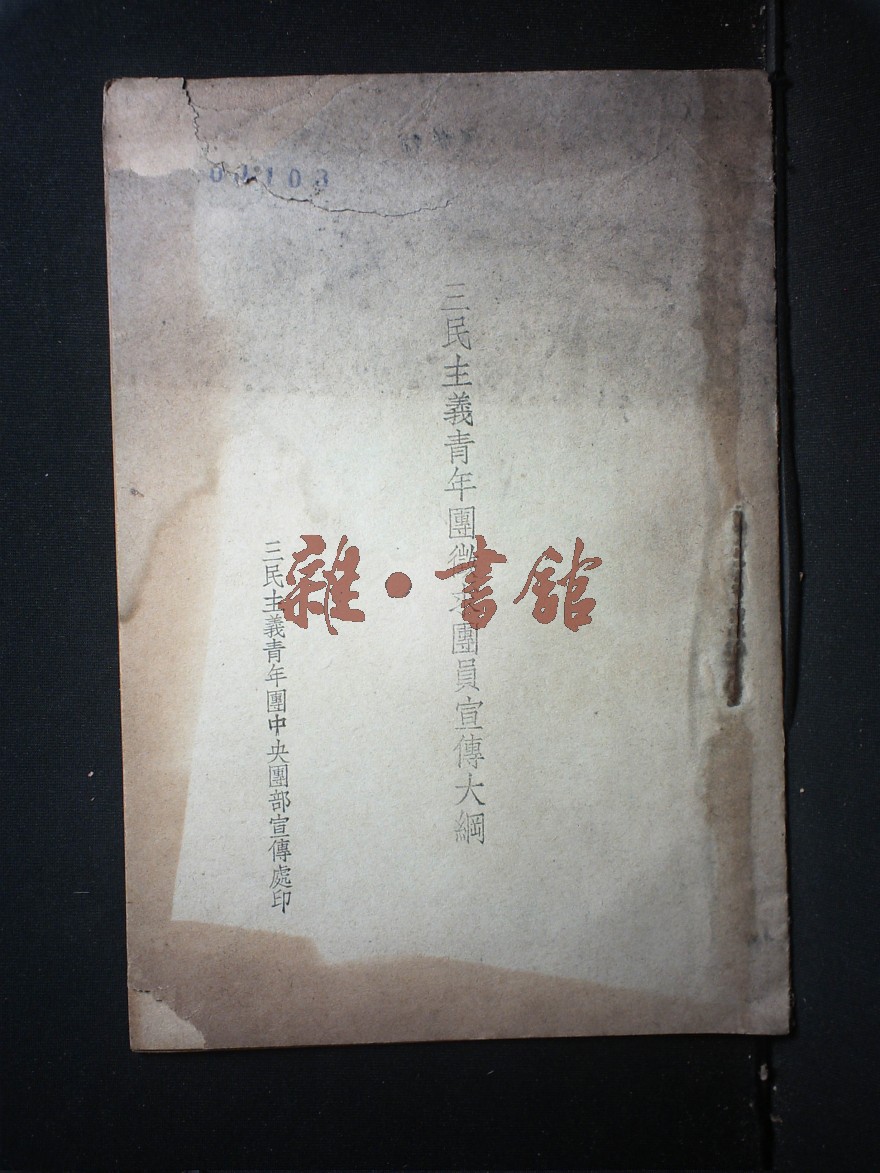 01103
三民主義青年團徵求團員宣傳大綱
三民主義青年團中央團部宣傳處印
雜·書館